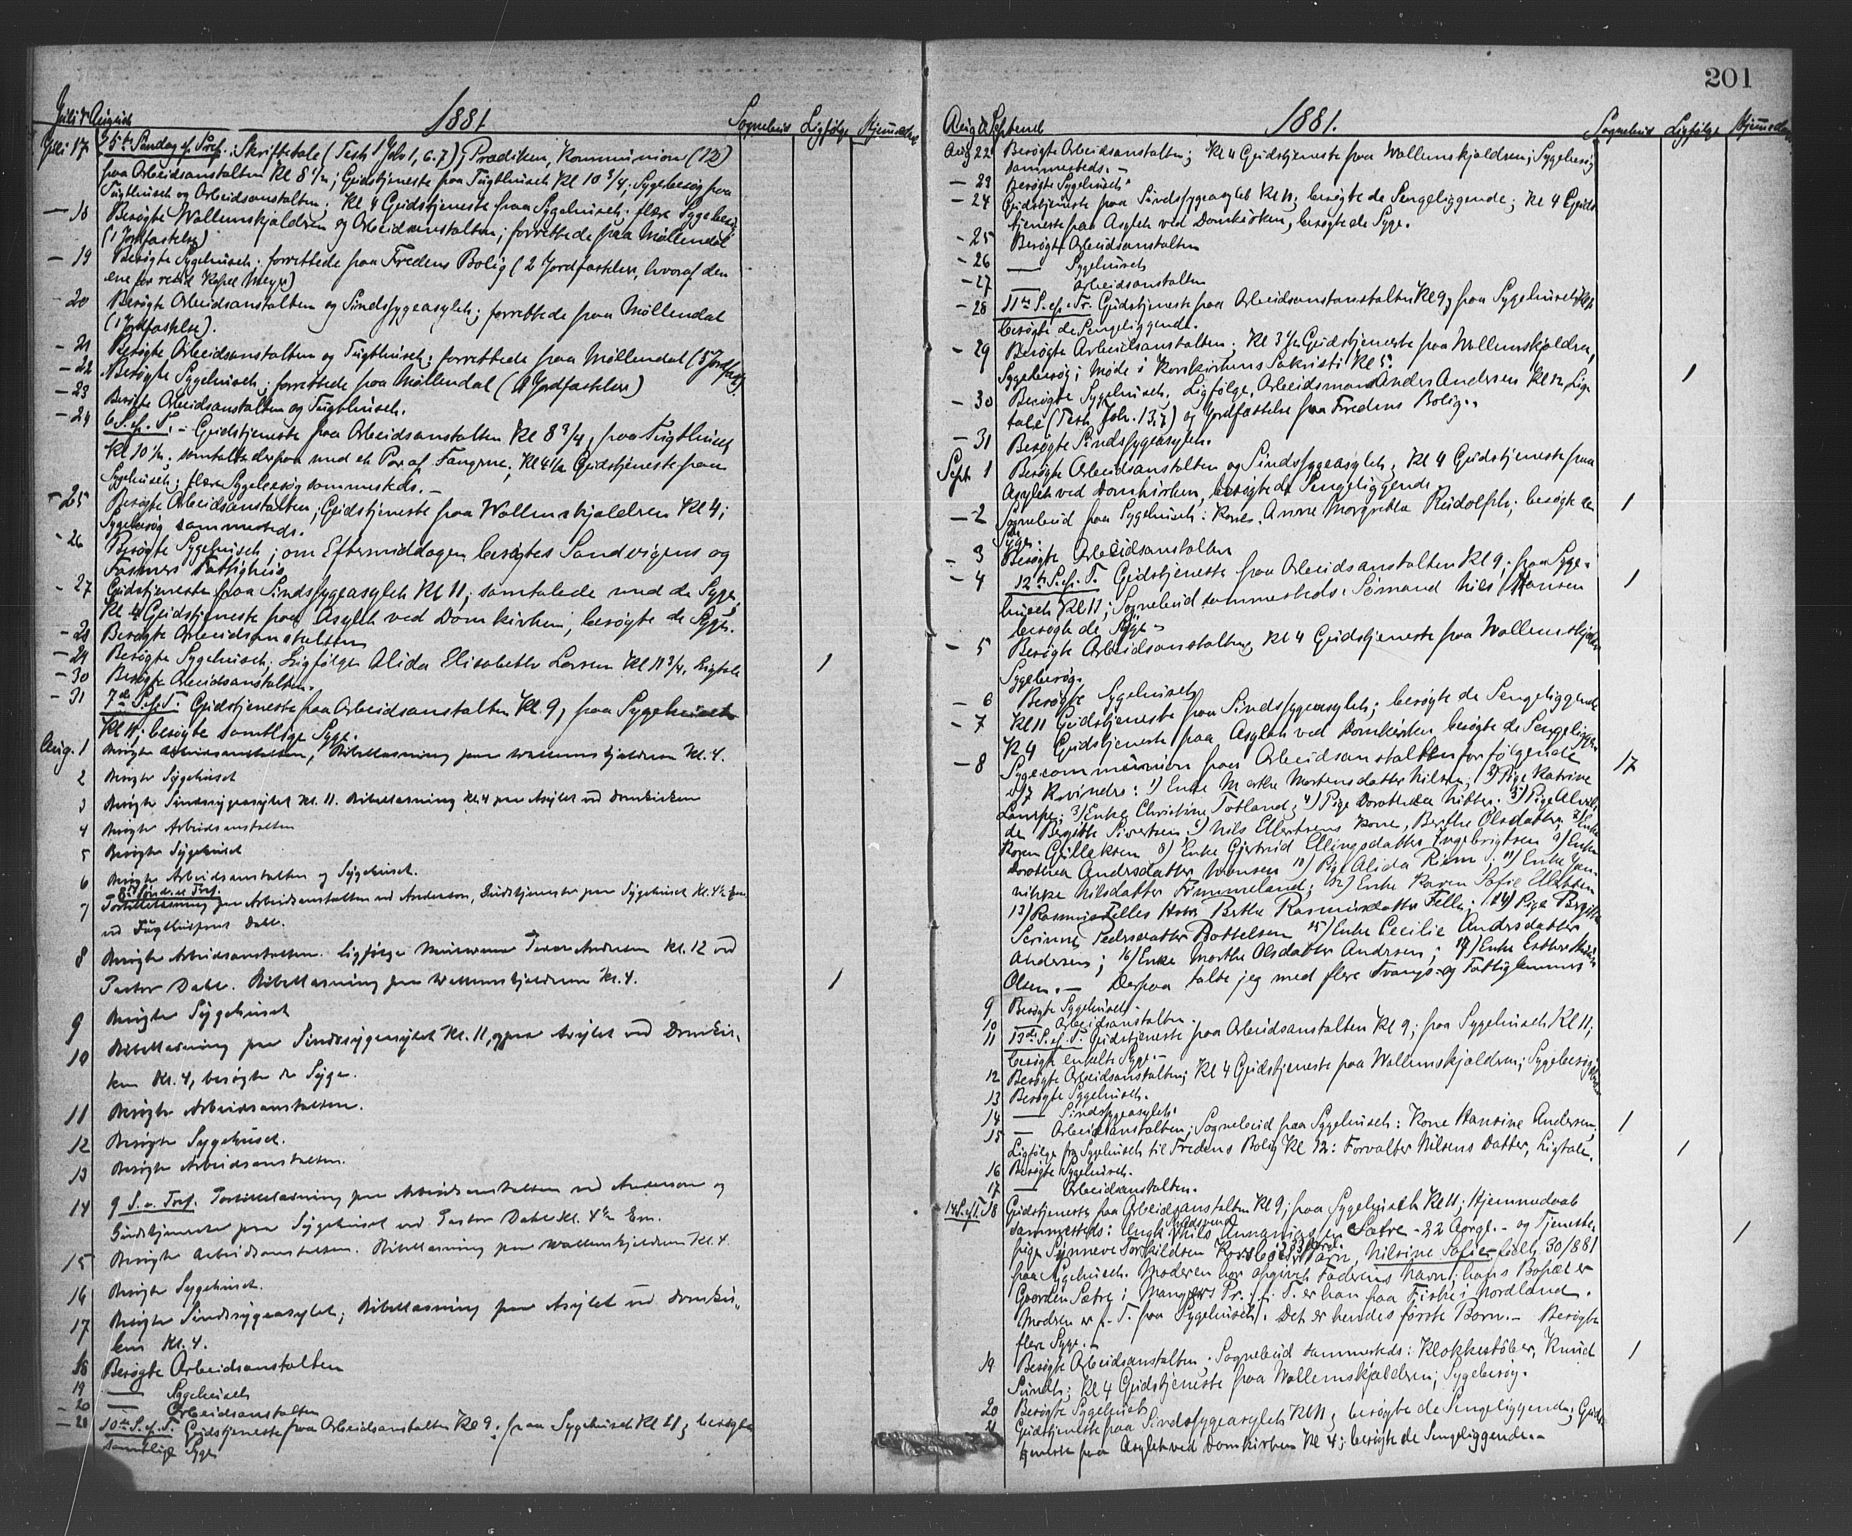 Juli & August 1881 Sognebud Ligfølge Hjemmedaab
Juli 17 5te Søndag ef. Tref. Skriftetale (Text 1 Joh 1, 6.7), Prædiken, Kommunion (12)
paa Arbeidsanstalten Kl 8 1/2; Gudstjeneste paa Tugthuset Kl 10 3/4. Sygebesøg paa
Tugthuset og Arbeidsanstalten; Kl 4 Gudstjeneste paa Sygehuset; flere Sygebesøg
— 18 Besøgte Wallemskjældren og Arbeidsanstalten; forrettede paa Møllendal
(1 Jordfæstelse)
— 19 Besøgte Sygehuset; forrettede paa Fredens Bolig (2 Jordfæstelser, hvoraf den
ene for resid Kapel Meyer)
— 20 Besøgte Arbeidsanstalten og Sindssygeasylet; forrettede paa Møllendal
(1 Jordfæstelse).
— 21 Besøgte Arbeidsanstalten og Tugthuset; forrettede paa Møllendal (3 Jordfæst)
— 22 Besøgte Sygehuset; forrettede paa Møllendal (1 Jordfæstelse)
— 23 Besøgte Arbeidsanstalten og Tugthuset.
— 24 6 S. ef. T. – Gudstjeneste paa Arbeidsanstalten Kl 8 3/4, paa Tugthuset
Kl 10 1/2. samtalede derpaa med et Par af Fangerne; Kl 4 1/2 Gudstjeneste paa
Sygehuset; flere Sygebesøg sammesteds. –
— 25 Besøgte Arbeidsanstalten; Gudstjeneste paa Wallemskjældren Kl 4;
Sygebesøg sammesteds.
— 26 Besøgte Sygehuset; om Eftermiddagen besøgtes Sandvigens og
Fasmers Fattighus
— 27 Gudstjeneste paa Sindssygeasylet Kl 11; samtalede med de Syge;
Kl 4 Gudstjeneste paa Asylet ved Domkirken; besøgte de Syge.
— 28 Besøgte Arbeidsanstalten
— 29 Besøgte Sygehuset. Ligfølge Alida Elisabeth Larsen Kl 11 3/4, Ligtale 1
— 30 Besøgte Arbeidsanstalten.
— 31 7de S. ef. T. Gudstjeneste paa Arbeidsanstalten Kl. 9, paa Sygehuset
Kl 11; besøgte samtlige Syge.
Aug. 1 Besøgte Arbeidsanstalten, Bibellæsning paa Wallemskjældren Kl. 4.
2 Besøgte Sygehuset
3 Besøgte Sindssygeasylet Kl. 11. Bibellæsning Kl. 4 paa Asylet ved Domkirken
4 Besøgte Arbeidsanstalten
5 Besøgte Sygehuset
6 Besøgte Arbeidsanstalten og Sygehuset.
8de Sønd. e. Tref.
7 Postillelæsning paa Arbeidsanstalten ved Anderson, Gudstjeneste paa Sygehuset Kl. 4 1/2 Em.
ved Tugthuspræst Dahl.
8 Besøgte Arbeidsanstalten. Ligfølge Kl. 12 ved
Pastor Dahl. Bibellæsning paa Wallemskjældren Kl. 4. 1
9 Besøgte Sygehuset
10 Bibellæsning paa Sindssygeasylet Kl. 11, og paa Asylet ved Domkir-
ken Kl. 4, besøgte de Syge.
11 Besøgte Arbeidsanstalten.
12 Besøgte Sygehuset.
13 Besøgte Arbeidsanstalten.
14 9 S. e. Tref. Postillelæsning paa Arbeidsanstalten ved Anderson og
Gudstjeneste paa Sygehuset ved Pastor Dahl Kl. 4 1/2 Em.
15 Besøgte Arbeidsanstalten. Bibellæsning paa Wallemskjældren Kl. 4.
16 Besøgte Sygehuset.
17 Besøgte Sindssygeasylet; Bibellæsning paa Asylet ved Domkir-
ken Kl. 4.
18 Besøgte Arbeidsanstalten
19 — Sygehuset
— 20 — Arbeidsanstalten
— 21 10de S. ef. T. Gudstjeneste paa Arbeidsanstalten Kl 9; paa Sygehuset Kl 11; besøgte
samtlige Syge
201
Aug & Septemb 1881. Sognebud Ligfølge Hjemmedaab
Aug 22 Besøgte Arbeidsanstalten; Kl 4 Gudstjeneste paa Wallemskjældren; Sygebesøg
sammesteds. –
— 23 Besøgte Sygehuset
— 24 Gudstjeneste paa Sindssygeasylet Kl 11; besøgte de Sengeliggende; Kl 4 Guds-
tjeneste paa Asylet ved Domkirken, besøgte de Syge.
— 25 Besøgte Arbeidsanstalten
— 26 — Sygehuset
— 27 Arbeidsanstalten
— 28 11te S. ef. Tr. Gudstjeneste paa Arbeidsanstalten Kl 9, paa Sygehuset Kl 11
besøgte de Sengeliggende.
— 29 Besøgte Arbeidsanstalten; Kl 3 1/2 Gudstjeneste paa Wallemskjældren,
Sygebesøg; Møde i Korskirkens Sakristi Kl 5.
— 30 Besøgte Sygehuset. Ligfølge, Arbeidsmand Anders Andersen Kl 12, Lig- 1
tale (Text Joh. 13,7) og Jordfæstelse paa Fredens Bolig.
— 31 Besøgte Sindssygeasylet.
Sept 1 Besøgte Arbeidsanstalten og Sindssygeasylet. Kl 4 Gudstjeneste paa
Asylet ved Domkirken, besøgte de Sengeliggende
— 2 Sognebud paa Sygehuset: Kone Anne Margrethe Rudolph; besøgte de 1
Syge.
— 3 Besøgte Arbeidsanstalten
— 4 12te S. ef. T. Gudstjeneste paa Arbeidsanstalten Kl 9, paa Syge-
huset Kl 11; Sognebud sammesteds: Sømand Nils Hansen 1
besøgte de Syge –
— 5 Besøgte Arbeidsanstalten, Kl 4 Gudstjeneste paa Wallemskjældren
Sygebesøg.
— 6 Besøgte Sygehuset
— 7 Kl 11 Gudstjeneste paa Sindssygeasylet; besøgte de Sengeliggende
Kl 4 Gudstjeneste paa Asylet ved Domkirken besøgte de Sengeliggen
— 8 Sygecommunion paa Arbeidsanstalten for følgende 17
17 Kvinder: 1) Enke Marthe Mortensdatter Nilsen; 2) Pige Katrine
Lampe; 3) Enke Christine Totland; 4) Pige Dorothea 5) Pige Alvil-
de Birgitte Sivertsen 6) Nils Ellertsens Kone, Berthe Olsdatter; 7) Enke
Karen Gullaksen 8) Enke Gjertrud Ellingsdatter Ingebrigtsen 9) Enke
Dorothea Andersdatter Hansen 10) Pige Alida Riem; 11) Enke Jan-
nikke Nilsdatter Frummeland; 12) Enke Karen Sofie
13) Rasmus Felles Hstr Berthe Rasmusdatter Felle; 14) Pige Birgitte
Serine Pedersdatter Bottelsen 15) Enke Cecilie Andersdatter
Andersen; 16) Enke Marthe Olsdatter Andersen; 17) Enke Esther
Olsen. – Derpaa talte jeg med flere Tvangs- og Fattiglemmer
9 Besøgte Sygehuset.
10 — Arbeidsanstalten.
11 13de S. ef. T. Gudstjeneste paa Arbeidsanstalten Kl 9; paa Sygehuset Kl 11,
besøgte enkelte Syge. –
12 Besøgte Arbeidsanstalten; Kl 4 Gudstjeneste paa Wallemskjældren; Sygebesøg
13 Besøgte Sygehuset.
14 — Sindssygeasylet
15 — Arbeidsanstalten; Sognebud paa Sygehuset: Kone Hansine Andersen, 1
Ligfølge fra Sygehuset til Fredens Bolig Kl 12: Forvalter Nilsens Datter, Ligtale. 1
16 Besøgte Sygehuset.
17 — Arbeidsanstalten.
14 S. ef. T. 18 Gudstjeneste paa Arbeidsanstalten Kl 9; paa Sygehuset Kl 11; Hjemmedaab
sammesteds: Ungk. Nils Sætre – 22 Aar gl. – og Tjeneste- 1
pige Synneve Torkildsen Barn, Nilsine Sofie – født 30/8 81
paa Sygehuset. Moderen har opgivet Faderens Navn, hans Bopæl er
Gaarden Sætre i Mangers Pr., f. T. er han paa Fiske i Nordland.
Modren er f. T. paa Sygehuset. Det er hendes første Barn. – Besøgte
flere Syge. –
19 Besøgte Arbeidsanstalten. Sognebud sammesteds: Klokkestøber, Knud 1
Sundt; Kl 4 Gudstjeneste paa Wallemskjældren; Sygebesøg.
20 Besøgte Sygehuset
21 Gudstjeneste paa Sindssygeasylet Kl 11, besøgte de Sengeliggende; Guds-
tjeneste paa Asylet ved Domkirken Kl 4; besøgte de Sengeliggende. –